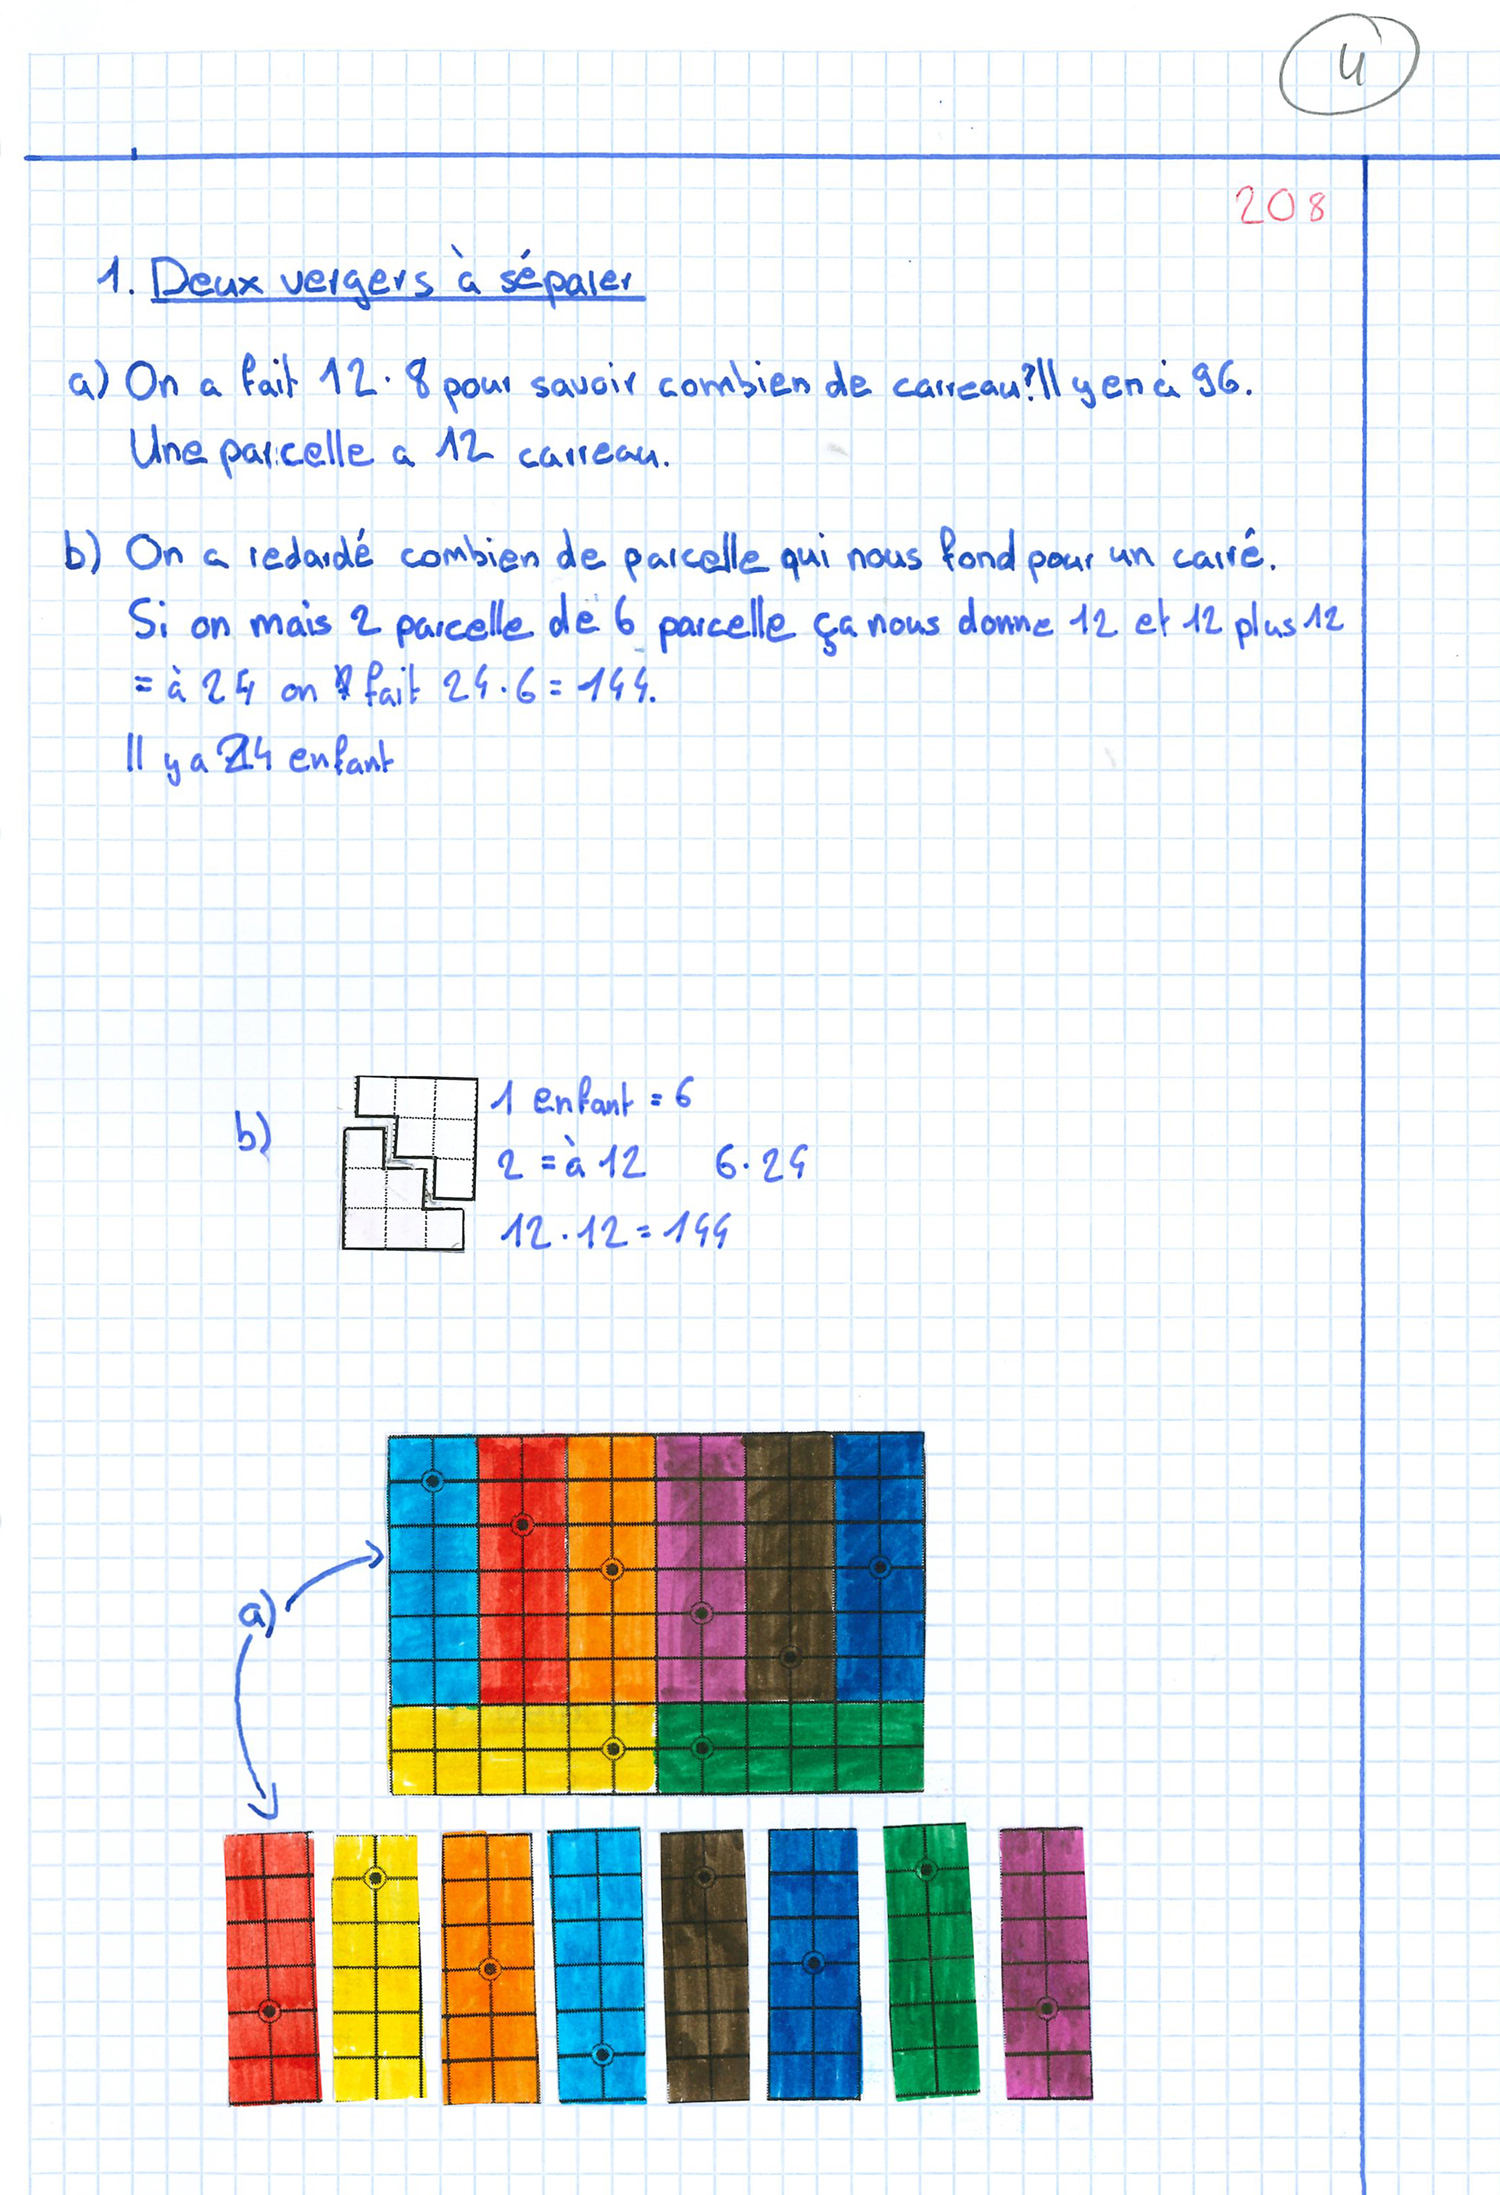 4
208
1. Deux vergers à séparer
a) On a fait 12 · 8 pour savoir combien de carreau? Il y en à 96.
Une parcelle a 12 carreau.
b) On a redardé combien de parcelle qui nous fond pour un carré.
Si on mais 2 parcelle de 6 parcelle ça nous donne 12 et 12 plus 12
= à 24 on fait 24 · 6 = 144.
Il y a 24 enfant
b)
1 enfant = 6
2 = à 12 6 · 24
12 · 12 = 144
a)